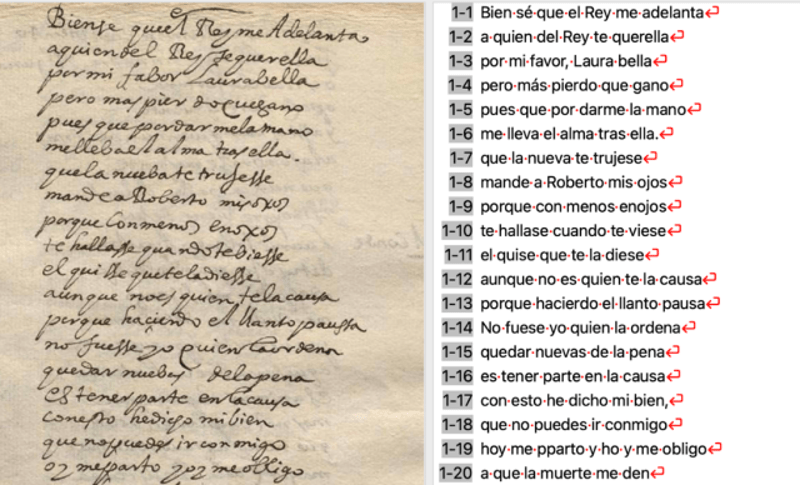 Biense que el Rey me Adelanta
a quien del Rey te querella
por mi fabor Laurabella
pero mas pierdo que gano
pues que por dar me la mano
me lleba el alma tras ella.
que la nueba te trujesse
mande a Roberto mis oxos
porque con menos enoxos
te hallasse quando te biesse
el quisse que te la diesse
aunque no es quien te la causa
porque haciendo el llanto paussa
no fuesse yo quien la ordena
quedar nuebas de la pena
es tener parte en la causa
con esto he dicho mi bien
que no puedes ir conmigo
oy me parto y oy me obligo
1-1 Bien·sé·que·el·Rey·me·adelanta↵
1-2 a·quien·del·Rey·te·querella↵
1-3 por·mi·favor,·Laura·bella↵
1-4 pero·más·pierdo·que·gano↵
1-5 pues·que·por·darme·la·mano↵
1-6 me·lleva·el·alma·tras·ella.↵
1-7 que·la·nueva·te·trujese↵
1-8 mande·a·Roberto·mis·ojos↵
1-9 porque·con·menos·enojos↵
1-10 te·hallase·cuando·te·viese↵
1-11 el·quise·que·te·la·diese↵
1-12 aunque·no·es·quien·te·la·causa↵
1-13 porque·hacierdo·el·llanto·pausa↵
1-14 No·fuese·yo·quien·la·ordena↵
1-15 quedar·nuevas·de·la·pena↵
1-16 es·tener·parte·en·la·causa↵
1-17 con·esto·he·dicho·mi·bien,↵
1-18 que·no·puedes·ir·conmigo↵
1-19 hoy·me·pparto·y·ho·y·me·obligo↵
1-20 a·que·la·muerte·me·den↵